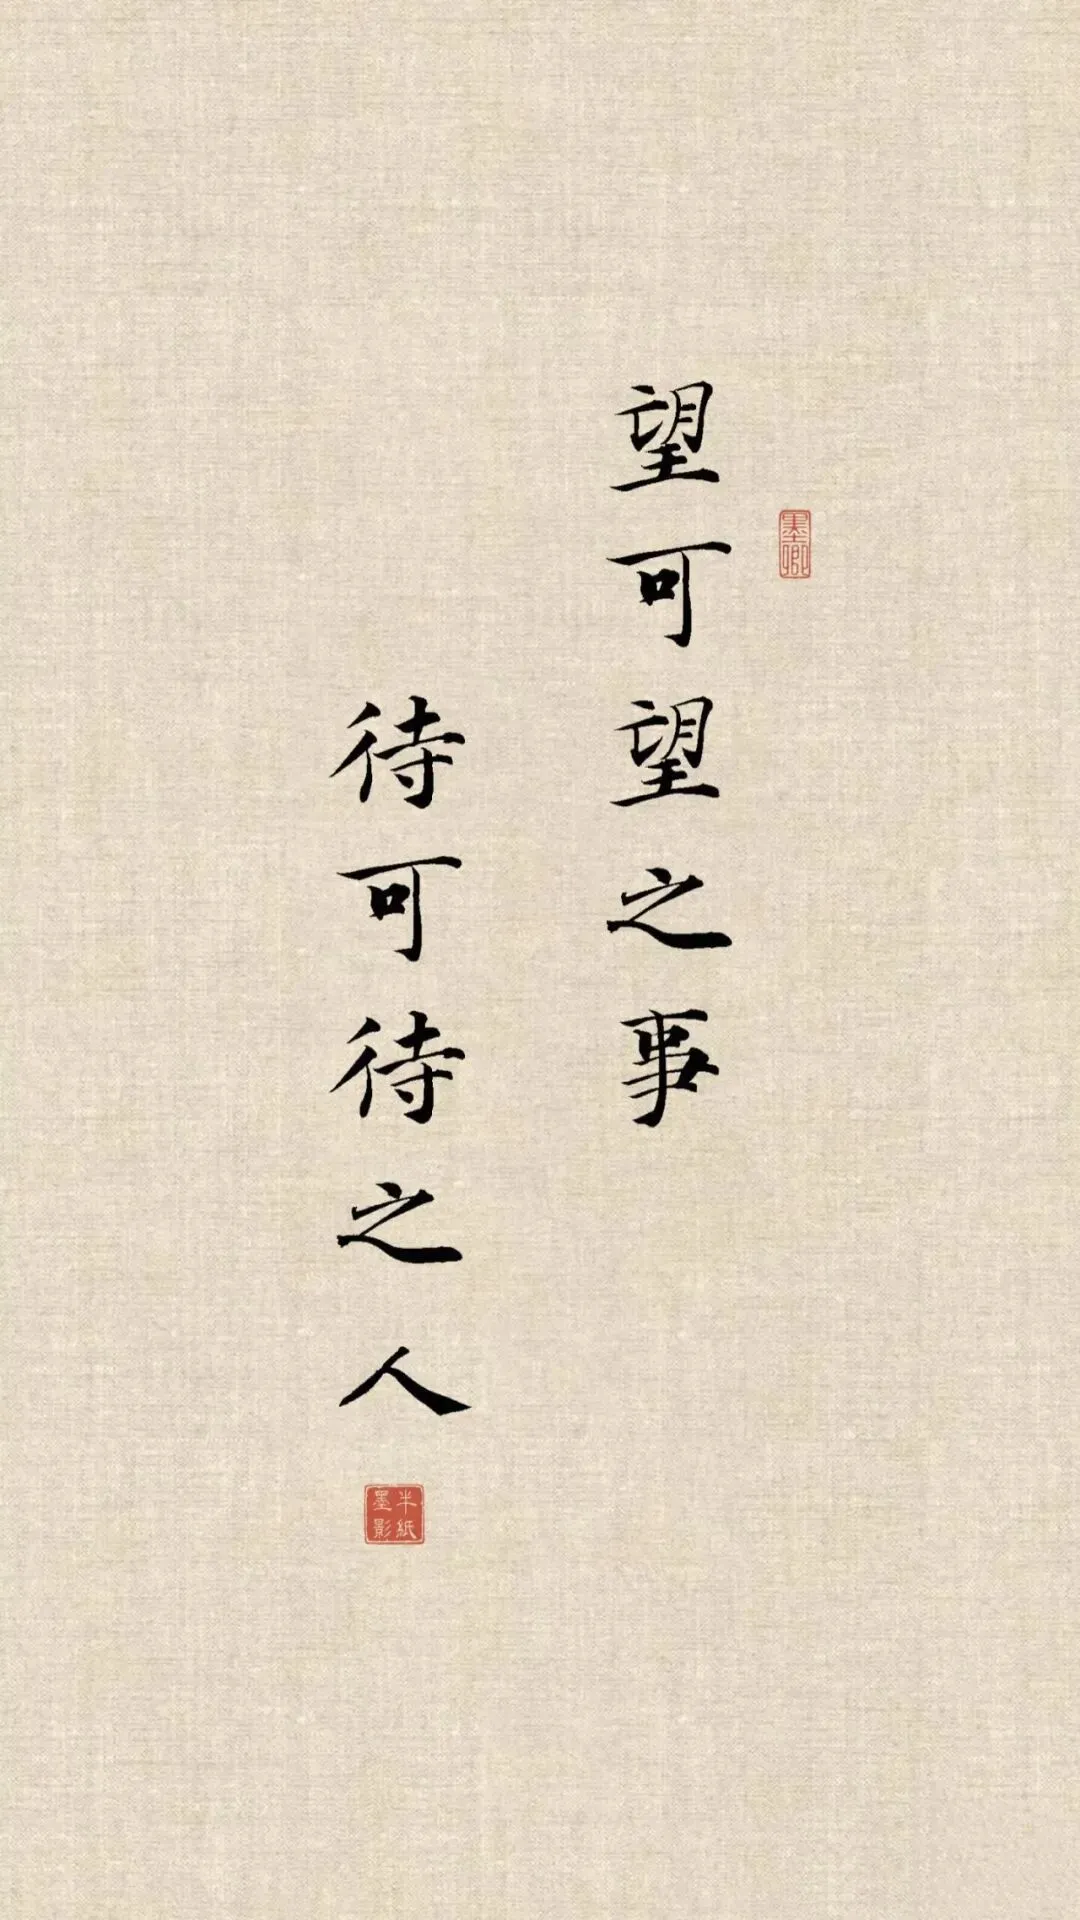 望可望之事
待可待之人
墨卿
半紙墨影